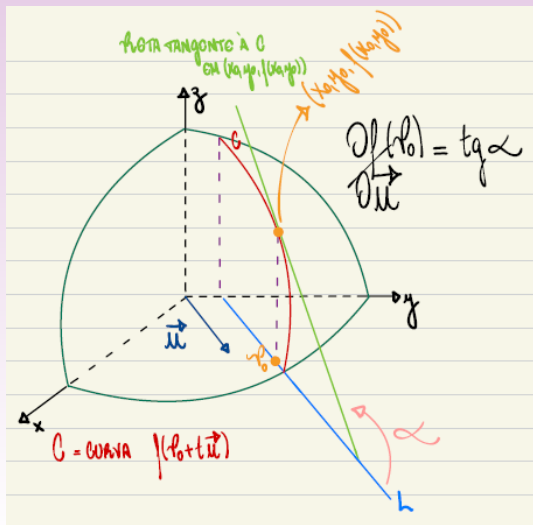 RETA TANGENTE À C
EM (x₀,y₀, f(x₀,y₀))
(x₀,y₀, f(x₀,y₀))
z
C
∂f(P₀) = tg α
∂u⃗
y
u⃗
P₀
x
C = CURVA f(P₀+tu⃗)
α
L